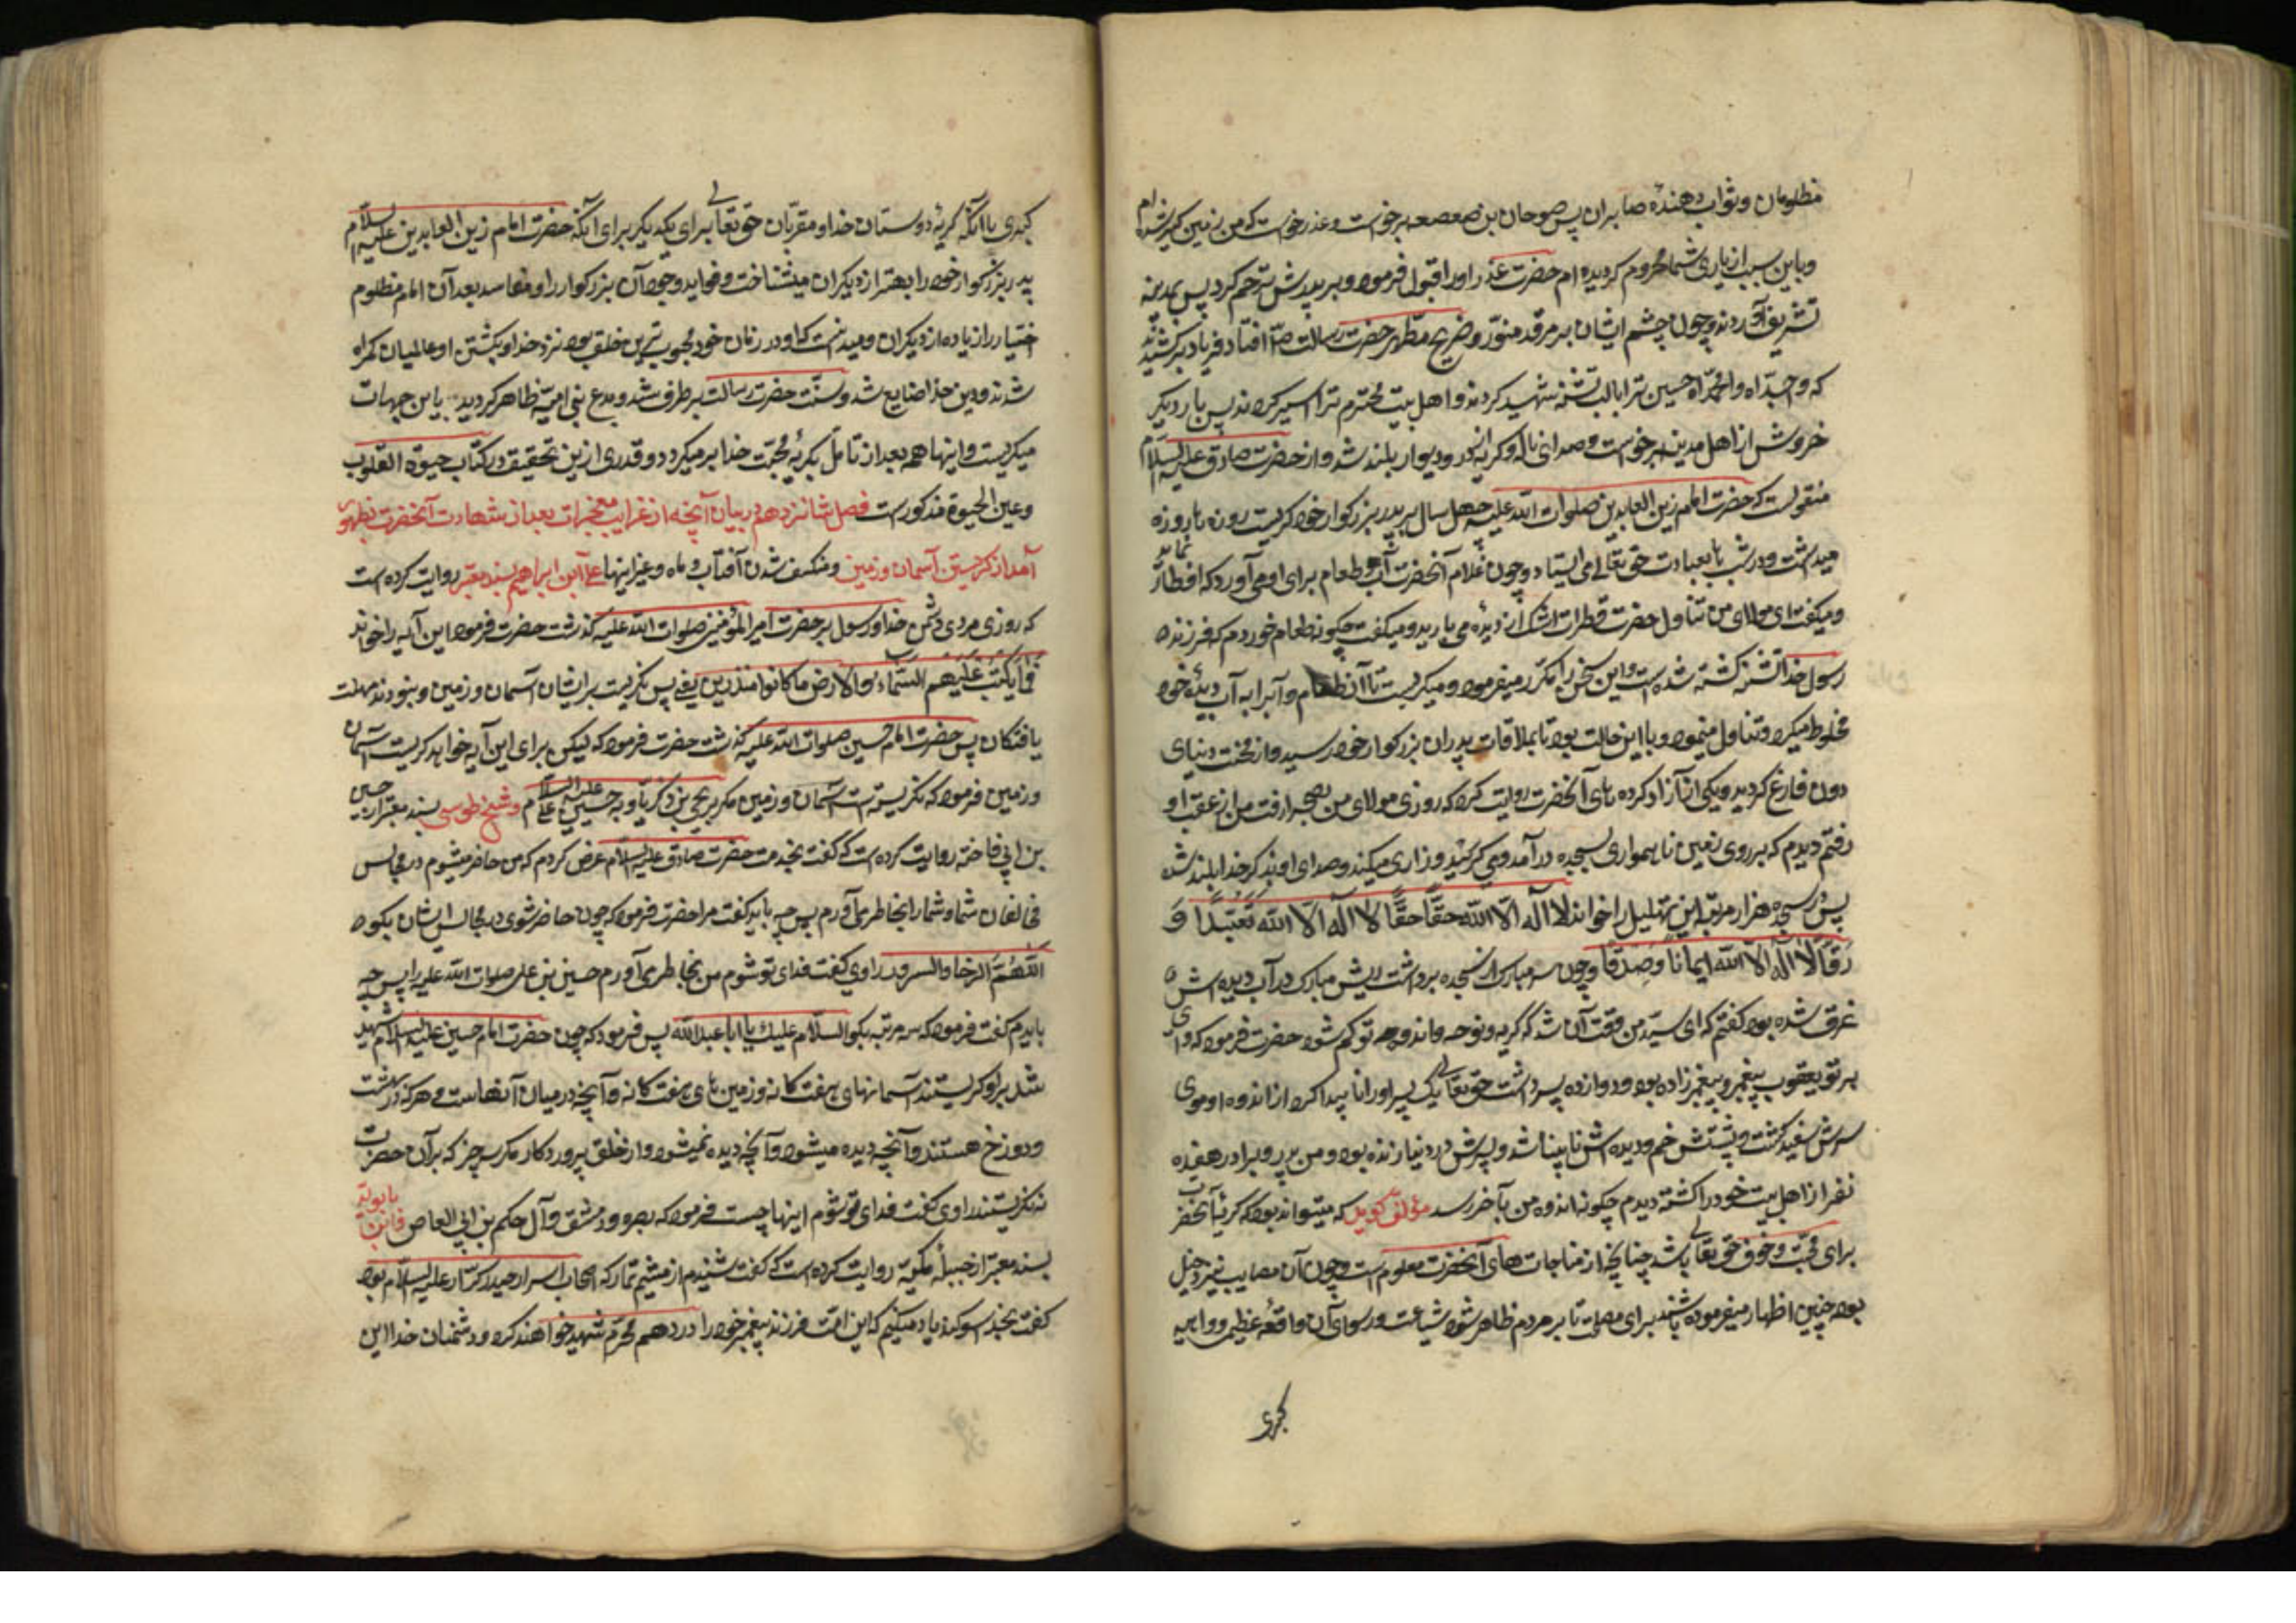 مظلومان و ثواب دهندهٔ صابران پس صوحان بن صعصعه برخواست و عذر خواست که من زمین کیر شده ام
و باین سبب از یاری شما محروم کردیده ام حضرت عذر او را قبول فرمود و بر پدرش ترحم کرد پس بمدینه
تشریف آوردند و چون چشم ایشان بر مرقد منور و ضریح مطهر حضرت رسالت ص افتاد فریاد برکشیدند
که وا جداه وا محمداه حسین ترا بالب تشنه شهید کردند و اهل بیت محترم ترا اسیر کردند پس بار دیکر
خروش از اهل مدینه برخواست و صدای ناله و کریه از در و دیوار بلند شد و از حضرت صادق علیه السلام
منقولست که حضرت امام زین العابدین صلوات الله علیه چهل سال بر پدر بزرکوار خود کریست روزها روزه
میداشت و در شبها بعبادت حق تعالی می ایستاد و چون غلام آنحضرت آب و طعام برای او می آورد که افطار نماید
و میکفت ای مولای من تناول حضرت قطرات اشک از دیده می بارید و میکفت چکونه طعام خوردم که فرزند
رسول خدا تشنه کشته شده است و این سخن را مکرر میفرمود و میکریست تا آن طعام و آبرا به آب دیدهٔ خود
مخلوط میکرد و تناول مینمود و با این حالت بود تا بملاقات پدران بزرکوار خود رسید و از محنت دنیای
دون فارغ کردید و یکی از آزاد کرده های آنحضرت روایت کرد که روزی مولای من بصحرا رفت من از عقب او
رفتم دیدم که بر روی زمین ناهمواری بسجده در آمد و می کرئید و زاری میکند و صدای او بذکر خدا بلند شد
پس در سجده هزار مرتبه این تهلیل را خواند لا اله الا الله حقا حقا لا اله الا الله تعبدا و
رقا لا اله الا الله ایمانا و صدقا و چون سر مبارک از سجده برداشت ریش مبارک در آب دیده اش
غرق شده بود کفتم که ای سید من وقت آن شد که کریه و نوحه و اندوه تو کم شود حضرت فرمود که وای
بر تو یعقوب پیغمبر و پیغمبرزاده بود و دوازده پسر داشت حق تعالی یک پسر او را ناپیدا کرد از اندوه او موی
سرش سفید کشت و پشتش خم و دیده اش نابینا شد و پسرش در دنیا زنده بود و من پدر و برادر هفده
نفر از اهل بیت خود را کشته دیدم چکونه اندوه من بآخر رسد مؤلف کوید که میتواند بود که کریهٔ آنحضرت
برای محبت و خوف حق تعالی باشد چنانچه از مناجات های آنحضرت معلوم است و چون آن مصایب نیز دخیل
بود چنین اظهار میفرموده باشند برای مصلحت تا بر مردم ظاهر شود شناعت و رسوای آن واقعهٔ عظیم و واهیه
کبری
کبری با آنکه کریهٔ دوستان خدا و مقربان حق تعالی برای یکدیکر برای آنکه حضرت امام زین العابدین علیه السلام
پدر بزرکوار خود را بهتر از دیکران میشناخت و فواید وجود آن بزرکوار را و مفاسد بعد آن امام مظلوم
اختیار را زیاده از دیکران و میدانست که او در زمان خود محبوب ترین خلق بود نزد خدا و بکشتن او عالمیان کمراه
شدند و دین خدا ضایع شد و سنت حضرت رسالت برطرف شد و بدع بنی امیه ظاهر کردید باین جهات
میکریست و اینها همه بعد از تامل بکریهٔ محبت خدا بر میکردد و قدری از ین تحقیق در کتاب حیوة القلوب
و عین الحیوة مذکور است فصل شانزدهم در بیان آنچه از غرایب معجزات بعد از شهادت آنحضرت بظهور
آمد از کریستن آسمان و زمین و منکسف شدن آفتاب و ماه و غیر اینها علی ابن ابراهیم بسند معتبر روایت کرده است
که روزی مردی دشمن خدا و رسول بر حضرت امیر المؤمنین صلوات الله علیه کذشت حضرت فرمود این آیه را خواند
فما بکت علیهم السماء و الارض و ما کانوا منظرین یعنی پس نکریست بر ایشان آسمان و زمین و نبودند مهلت
یافتکان پس حضرت امام حسین صلوات الله علیه کذشت حضرت فرمود که لیکن برای این آیه خواهد کریست آسمان
و زمین فرمود که نکریسته است آسمان و زمین مکر بر یحیی بن زکریا و بر حسین علی علیه السلام و شیخ طوسی بسند معتبر از حسین
بن ابی فاخته روایت کرده است که کفت بخدمت حضرت صادق علیه السلام عرض کردم که من حاضر میشوم در مجالس
مخالفان شما و شما را بخاطر می آورم پس چه باید کفت مرا حضرت فرمود که چون حاضر شوی در مجالس ایشان بکو
اللهم ارنا الرخا و السرور راوی کفت فدای تو شوم من بخاطر می آورم حسین بن علی صلوات الله علیه را پس چه
بایدم کفت فرمود که سه مرتبه بکو السلام علیک یا ابا عبد الله پس فرمود که چون حضرت امام حسین علیه السلام شهید
شد بر او کریستند آسمانهای هفت کانه و زمین های هفت کانه و آنچه در میان آنهاست و هر که در بهشت
و دوزخ هستند و آنچه دیده میشود و آنچه دیده نمیشود و از خلق پروردکار مکر سه چیز که بر آن حضرت
نکریستند راوی کفت فدای تو شوم اینها چیست فرمود که بصره و دمشق و آل حکم بن ابی العاص و ابن بابویه
بسند معتبر از جبلهٔ مکیه روایت کرده است که کفت شنیدم از میثم تمار که اصحاب اسرار حیدر کرار علیه السلام بود
کفت بخدا سوکند یاد میکنم که این امت فرزند پیغمبر خود را در دهم محرم شهید خواهند کرد و دشمنان خدا این